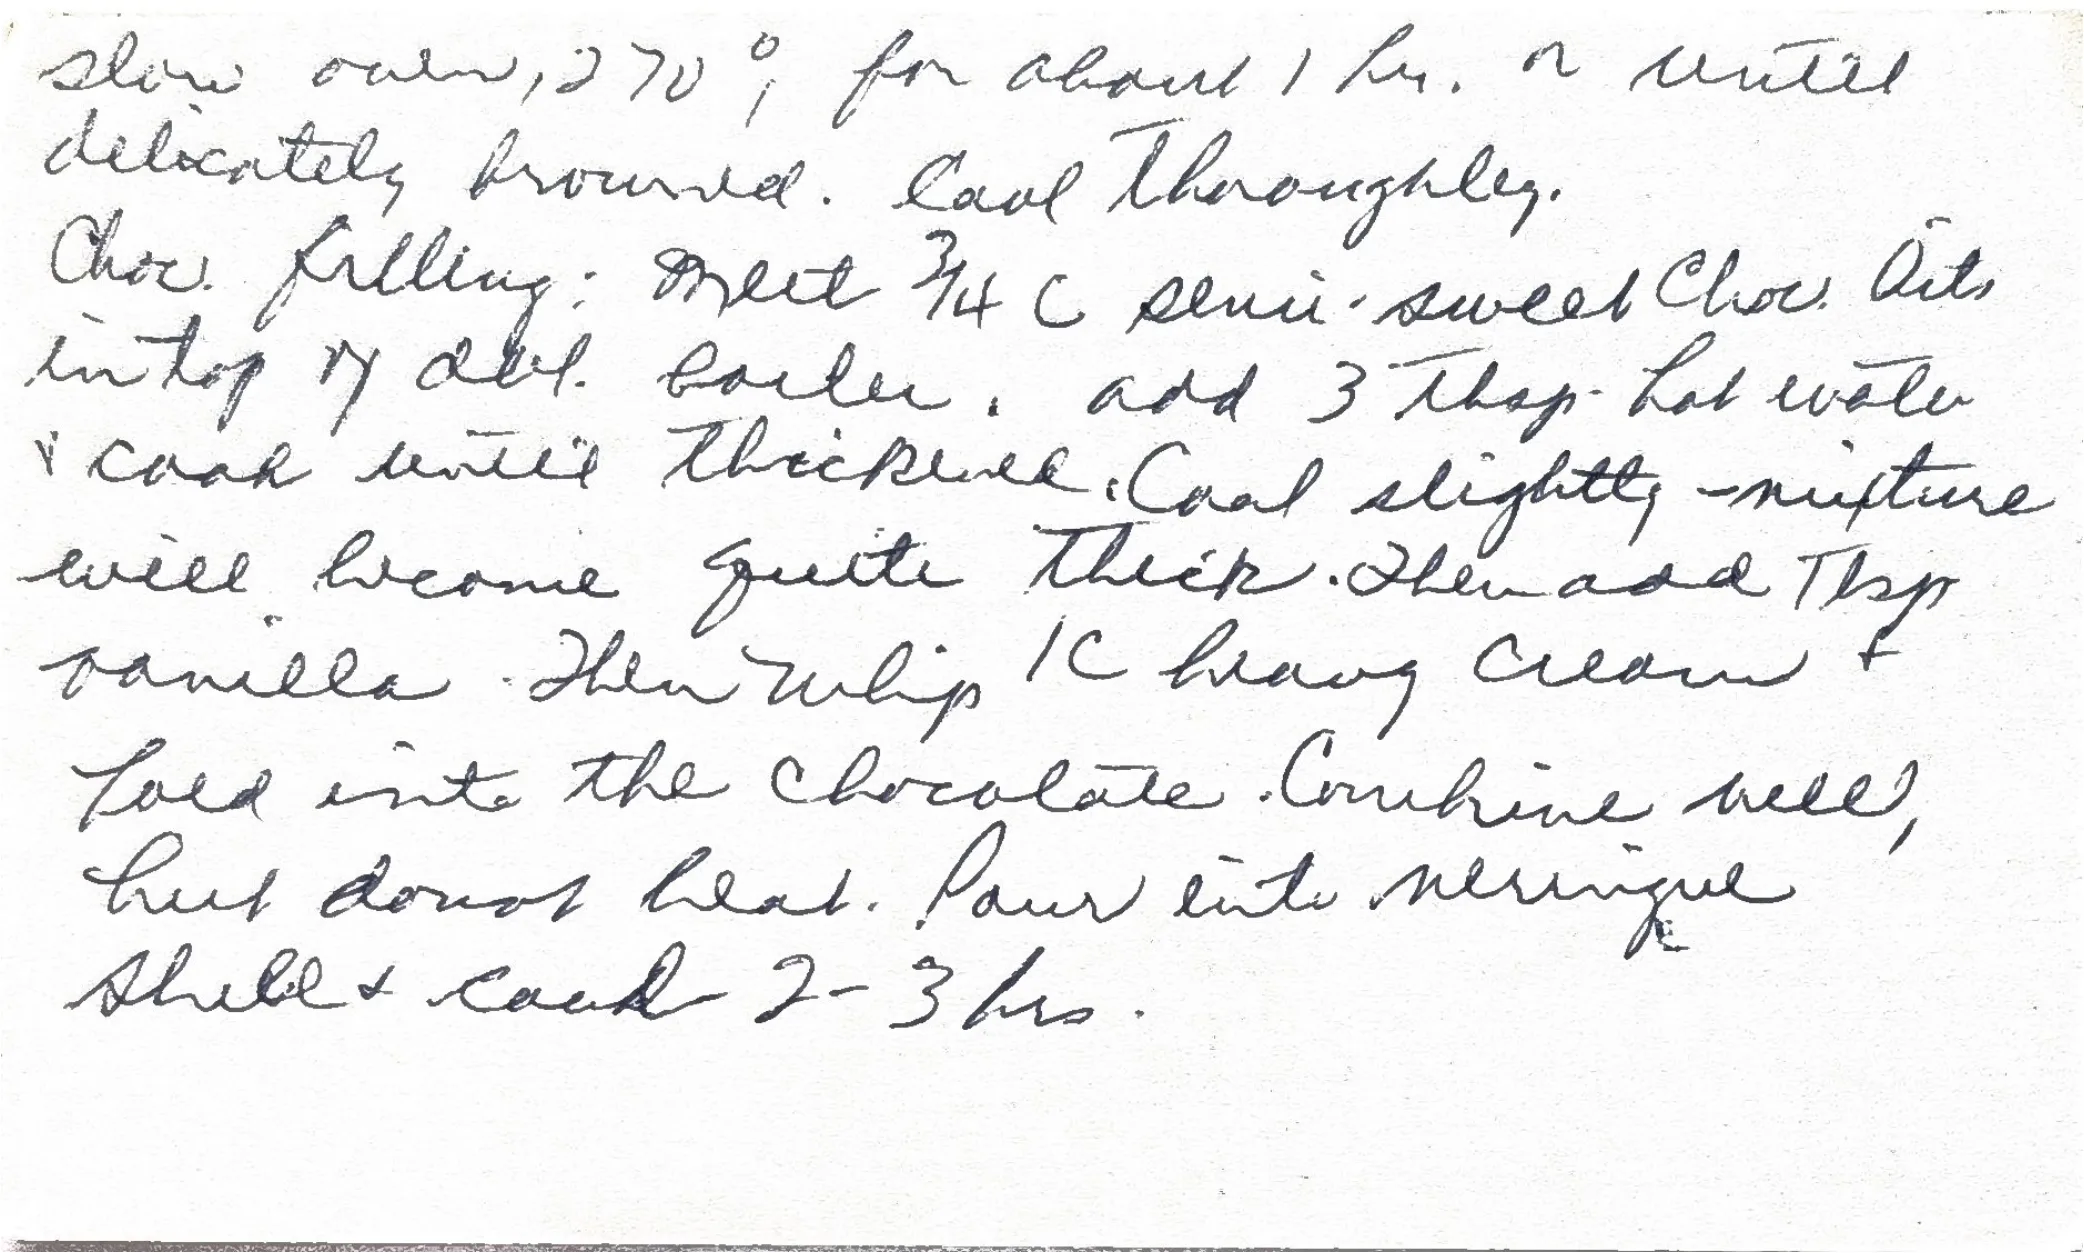 slow oven, 270°, for about 1 hr. or until
delicately browned. Cool thoroughly.
Choc. filling: Melt 3/4 C semi-sweet Choc. Bits
in top of dbl. boiler. add 3 Tbsp. hot water
& cook until thickened. Cool slightly - mixture
will become quite thick. Then add Tbsp
vanilla. Then whip 1C heavy cream +
fold into the chocolate. Combine well,
but do not beat. Pour into meringue
shell +  2-3 hrs.